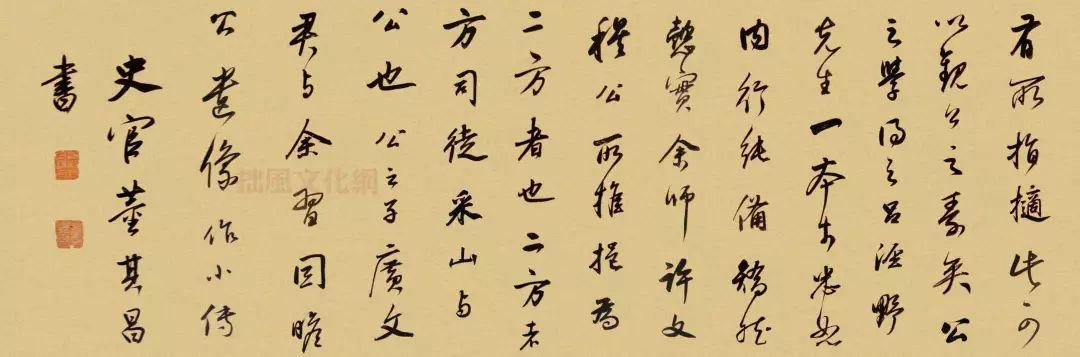 有所指擿此可
以觀公之素矣公
之學得之呂涇野
先生一本于忠恕
内行純備穆然
懿實余師許文
穆公所推挹為
二方者也二方者
方司徒采山与
公也公之子廣文
君与余習因瞻
公遺像作小傳
史官董其昌
書
拙風文化網